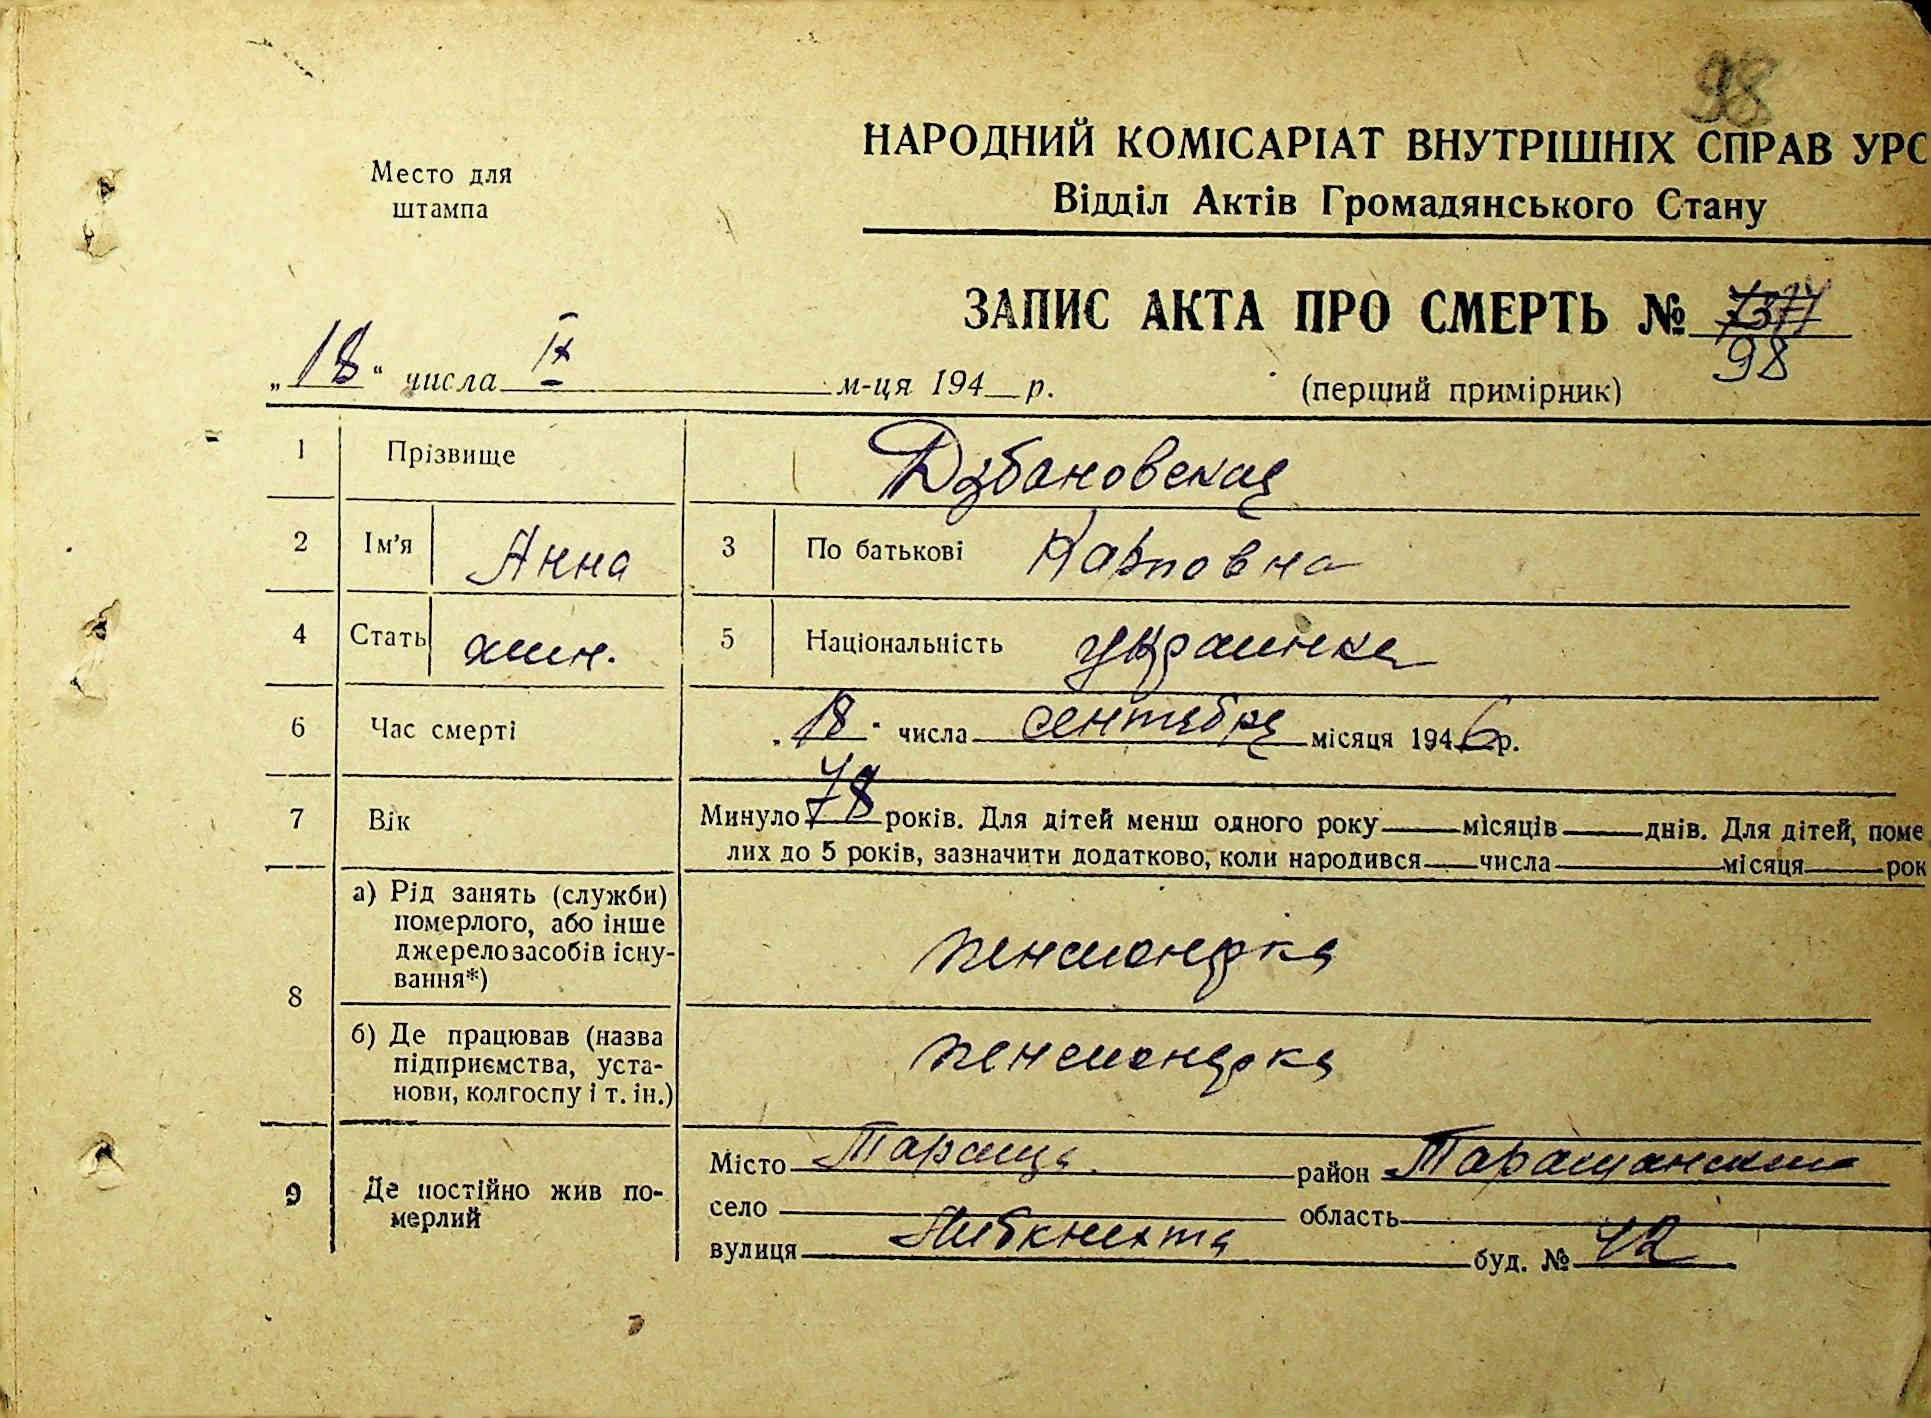 98
НАРОДНИЙ КОМІСАРІАТ ВНУТРІШНІХ СПРАВ УРС
Відділ Актів Громадянського Стану
Место для
штампа
ЗАПИС АКТА ПРО СМЕРТЬ №
98
„18“ числа IX м-ця 194 р. (перший примірник)
1 Прізвище Дзбановская
2 Ім'я Анна 3 По батькові Карповна
4 Стать жен. 5 Національність украинка
6 Час смерті „18“ числа сентября місяця 1946 р.
7 Вік Минуло 78 років. Для дітей менш одного року місяців днів. Для дітей, поме
лих до 5 років, зазначити додатково, коли народився числа місяця рок
8 а) Рід занять (служби)
померлого, або інше
джерело засобів існу-
вання*) пенсионерка
б) Де працював (назва
підприємства, уста-
нови, колгоспу і т. ін.) пенсионерка
9 Де постійно жив по-
мерлий
Місто Тараща район Таращанский
село область
вулиця Либкнехта буд. № 42